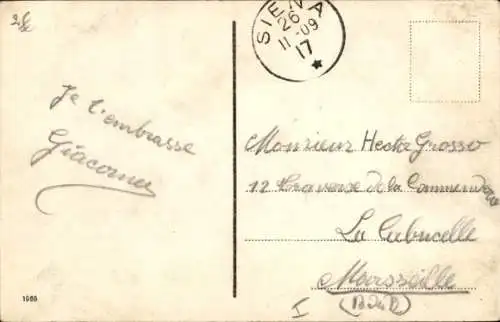 SIENA
26
11-09
17
Je t'embrasse
Giacomo
Monsieur Hector Grosso
12 Traverse de la Commanderie
La Cabucelle
Marseille
(BdR)
I
1968